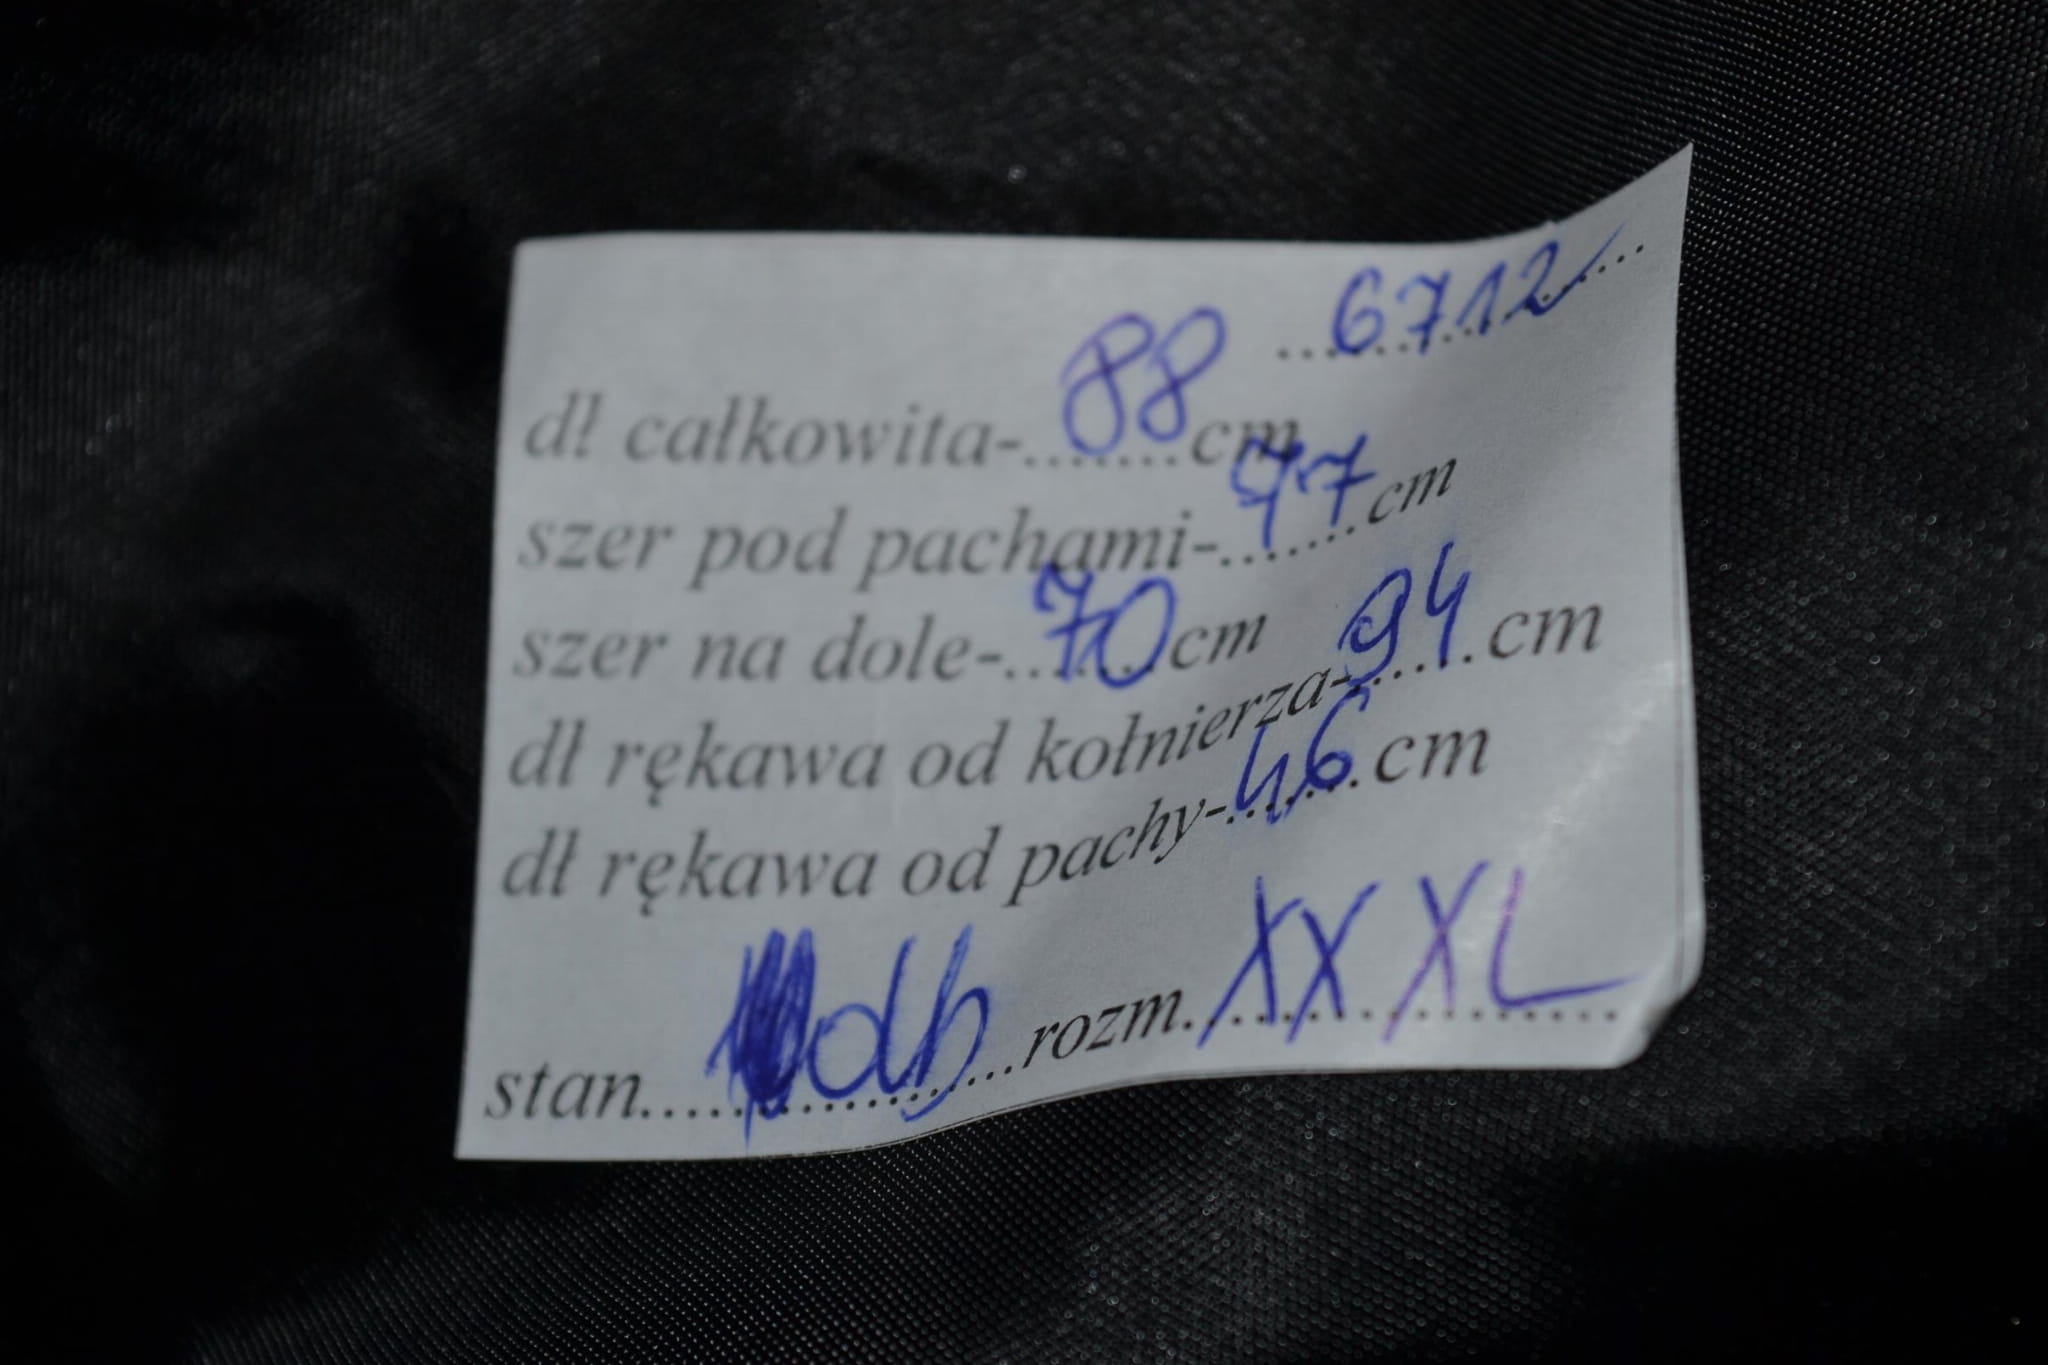 6712
dł całkowita-.......88.......cm
szer pod pachami-.......77.......cm
szer na dole-.......70.......cm
dł rękawa od kołnierza-.......94.......cm
dł rękawa od pachy-.......46.......cm
stan....................rozm.....XXXL.....